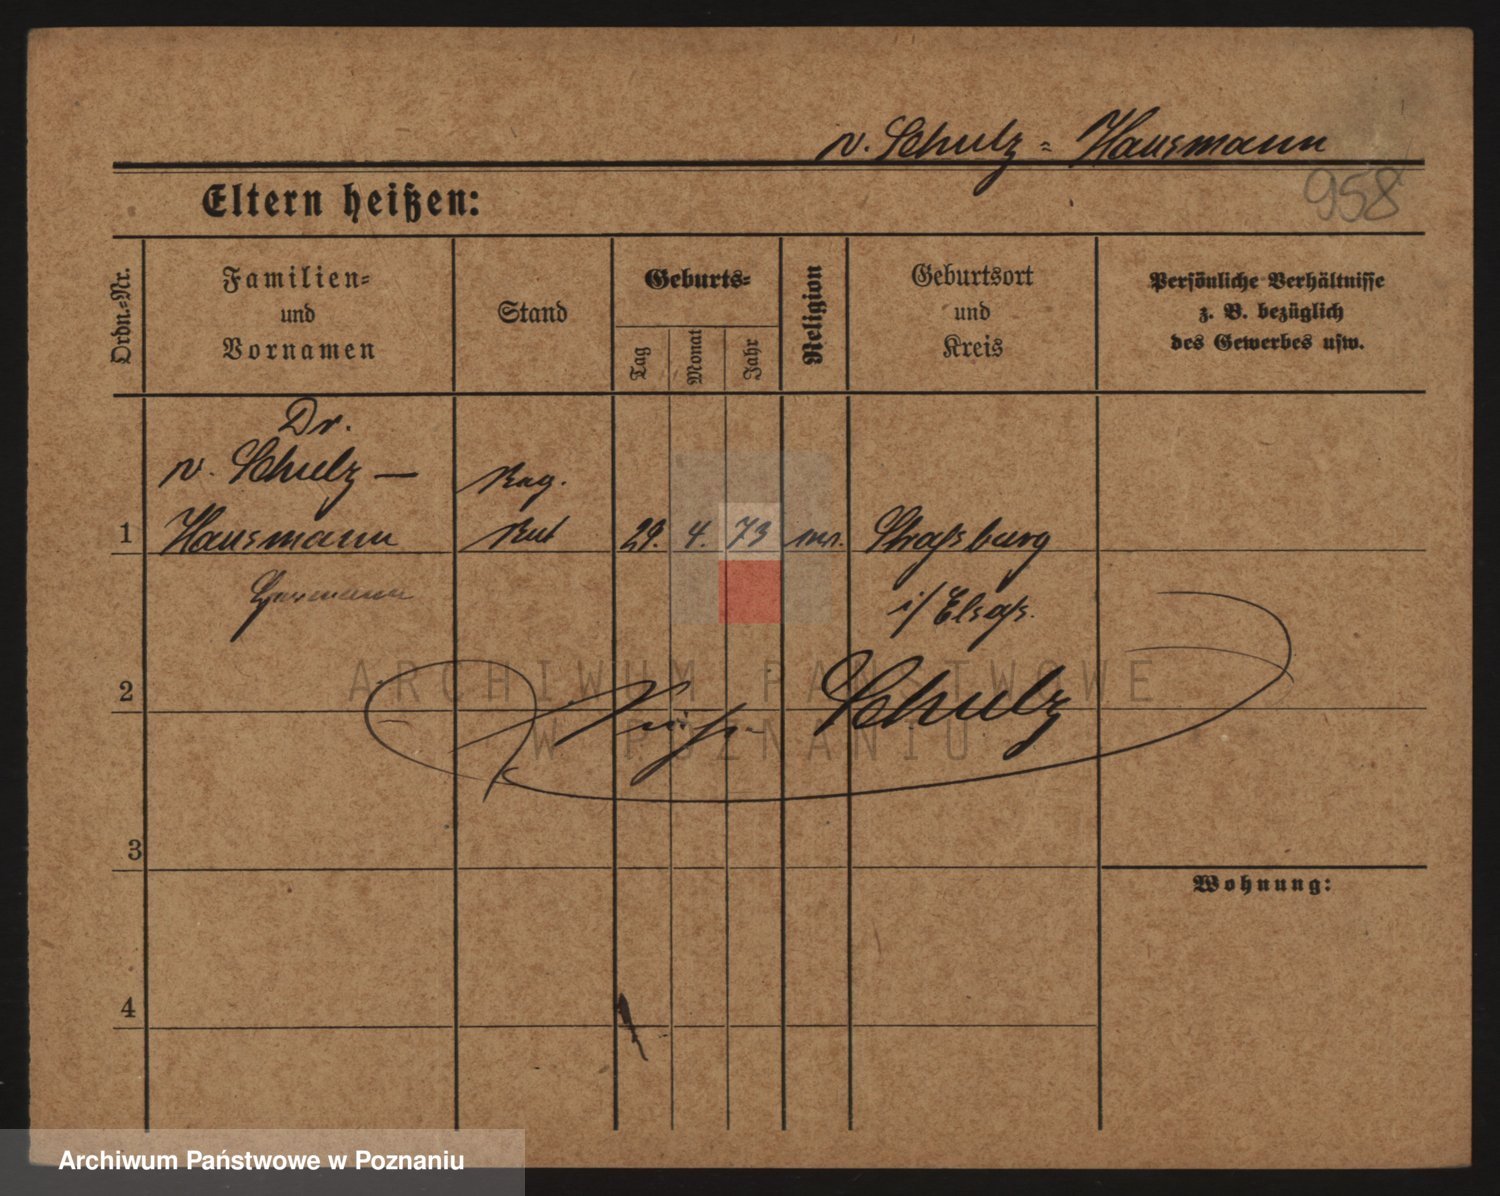 v. Schulz = Hausmann
Eltern heißen:
958
Ordn.-Nr.
Familien-
und
Vornamen
Stand
Geburts-
Tag
Monat
Jahr
Religion
Geburtsort
und
Kreis
Persönliche Verhältnisse
z. B. bezüglich
des Gewerbes usw.
Dr.
v. Schulz —
Hausmann
Reg.
Rat
1
29. 4. 73
Straßburg
i/ Elsaß.
Hermann
2
Schulz
ARCHIWUM PAŃSTWOWE
W POZNANIU
3
Wohnung:
4
Archiwum Państwowe w Poznaniu